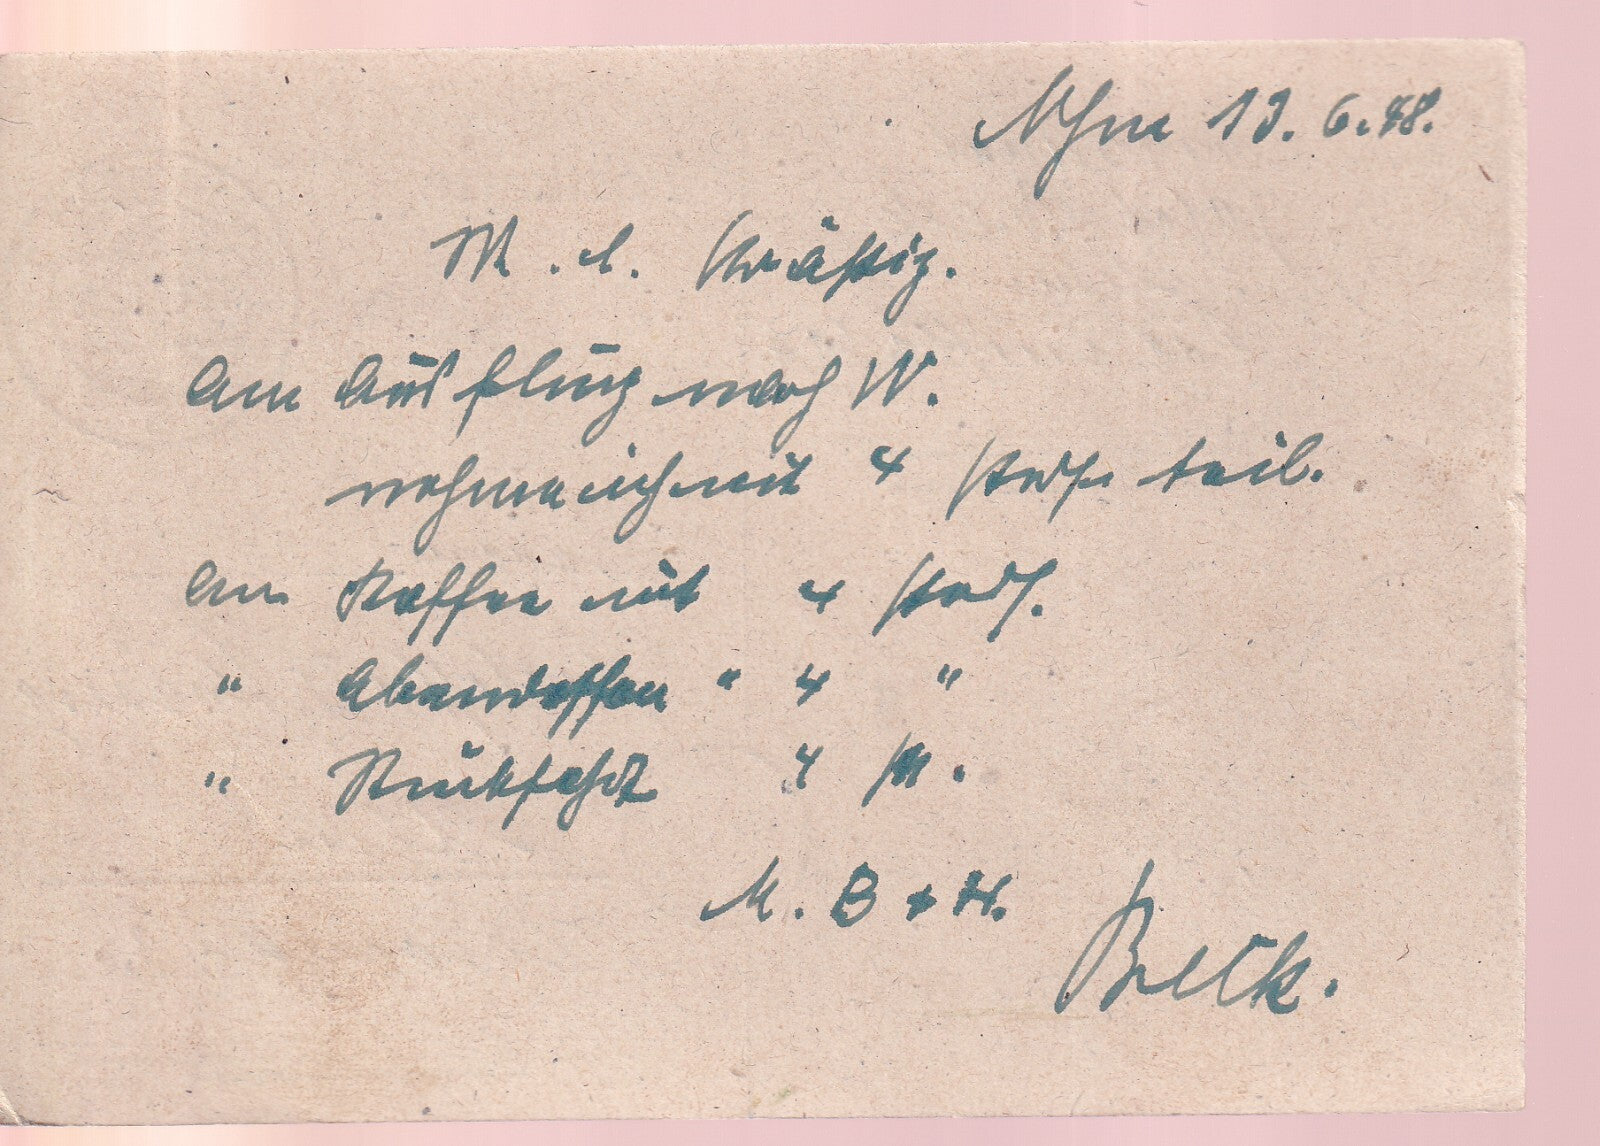 Mhm 13. 6. 48.
M. l. Kräftig.
Am Ausflug nach W.
nehme ich mit 4 Pers. teil.
Am Kaffee mit 4 Pers.
" Abendessen " 4 "
" Rückfahrt 4 "
M. B + H.
Beck.